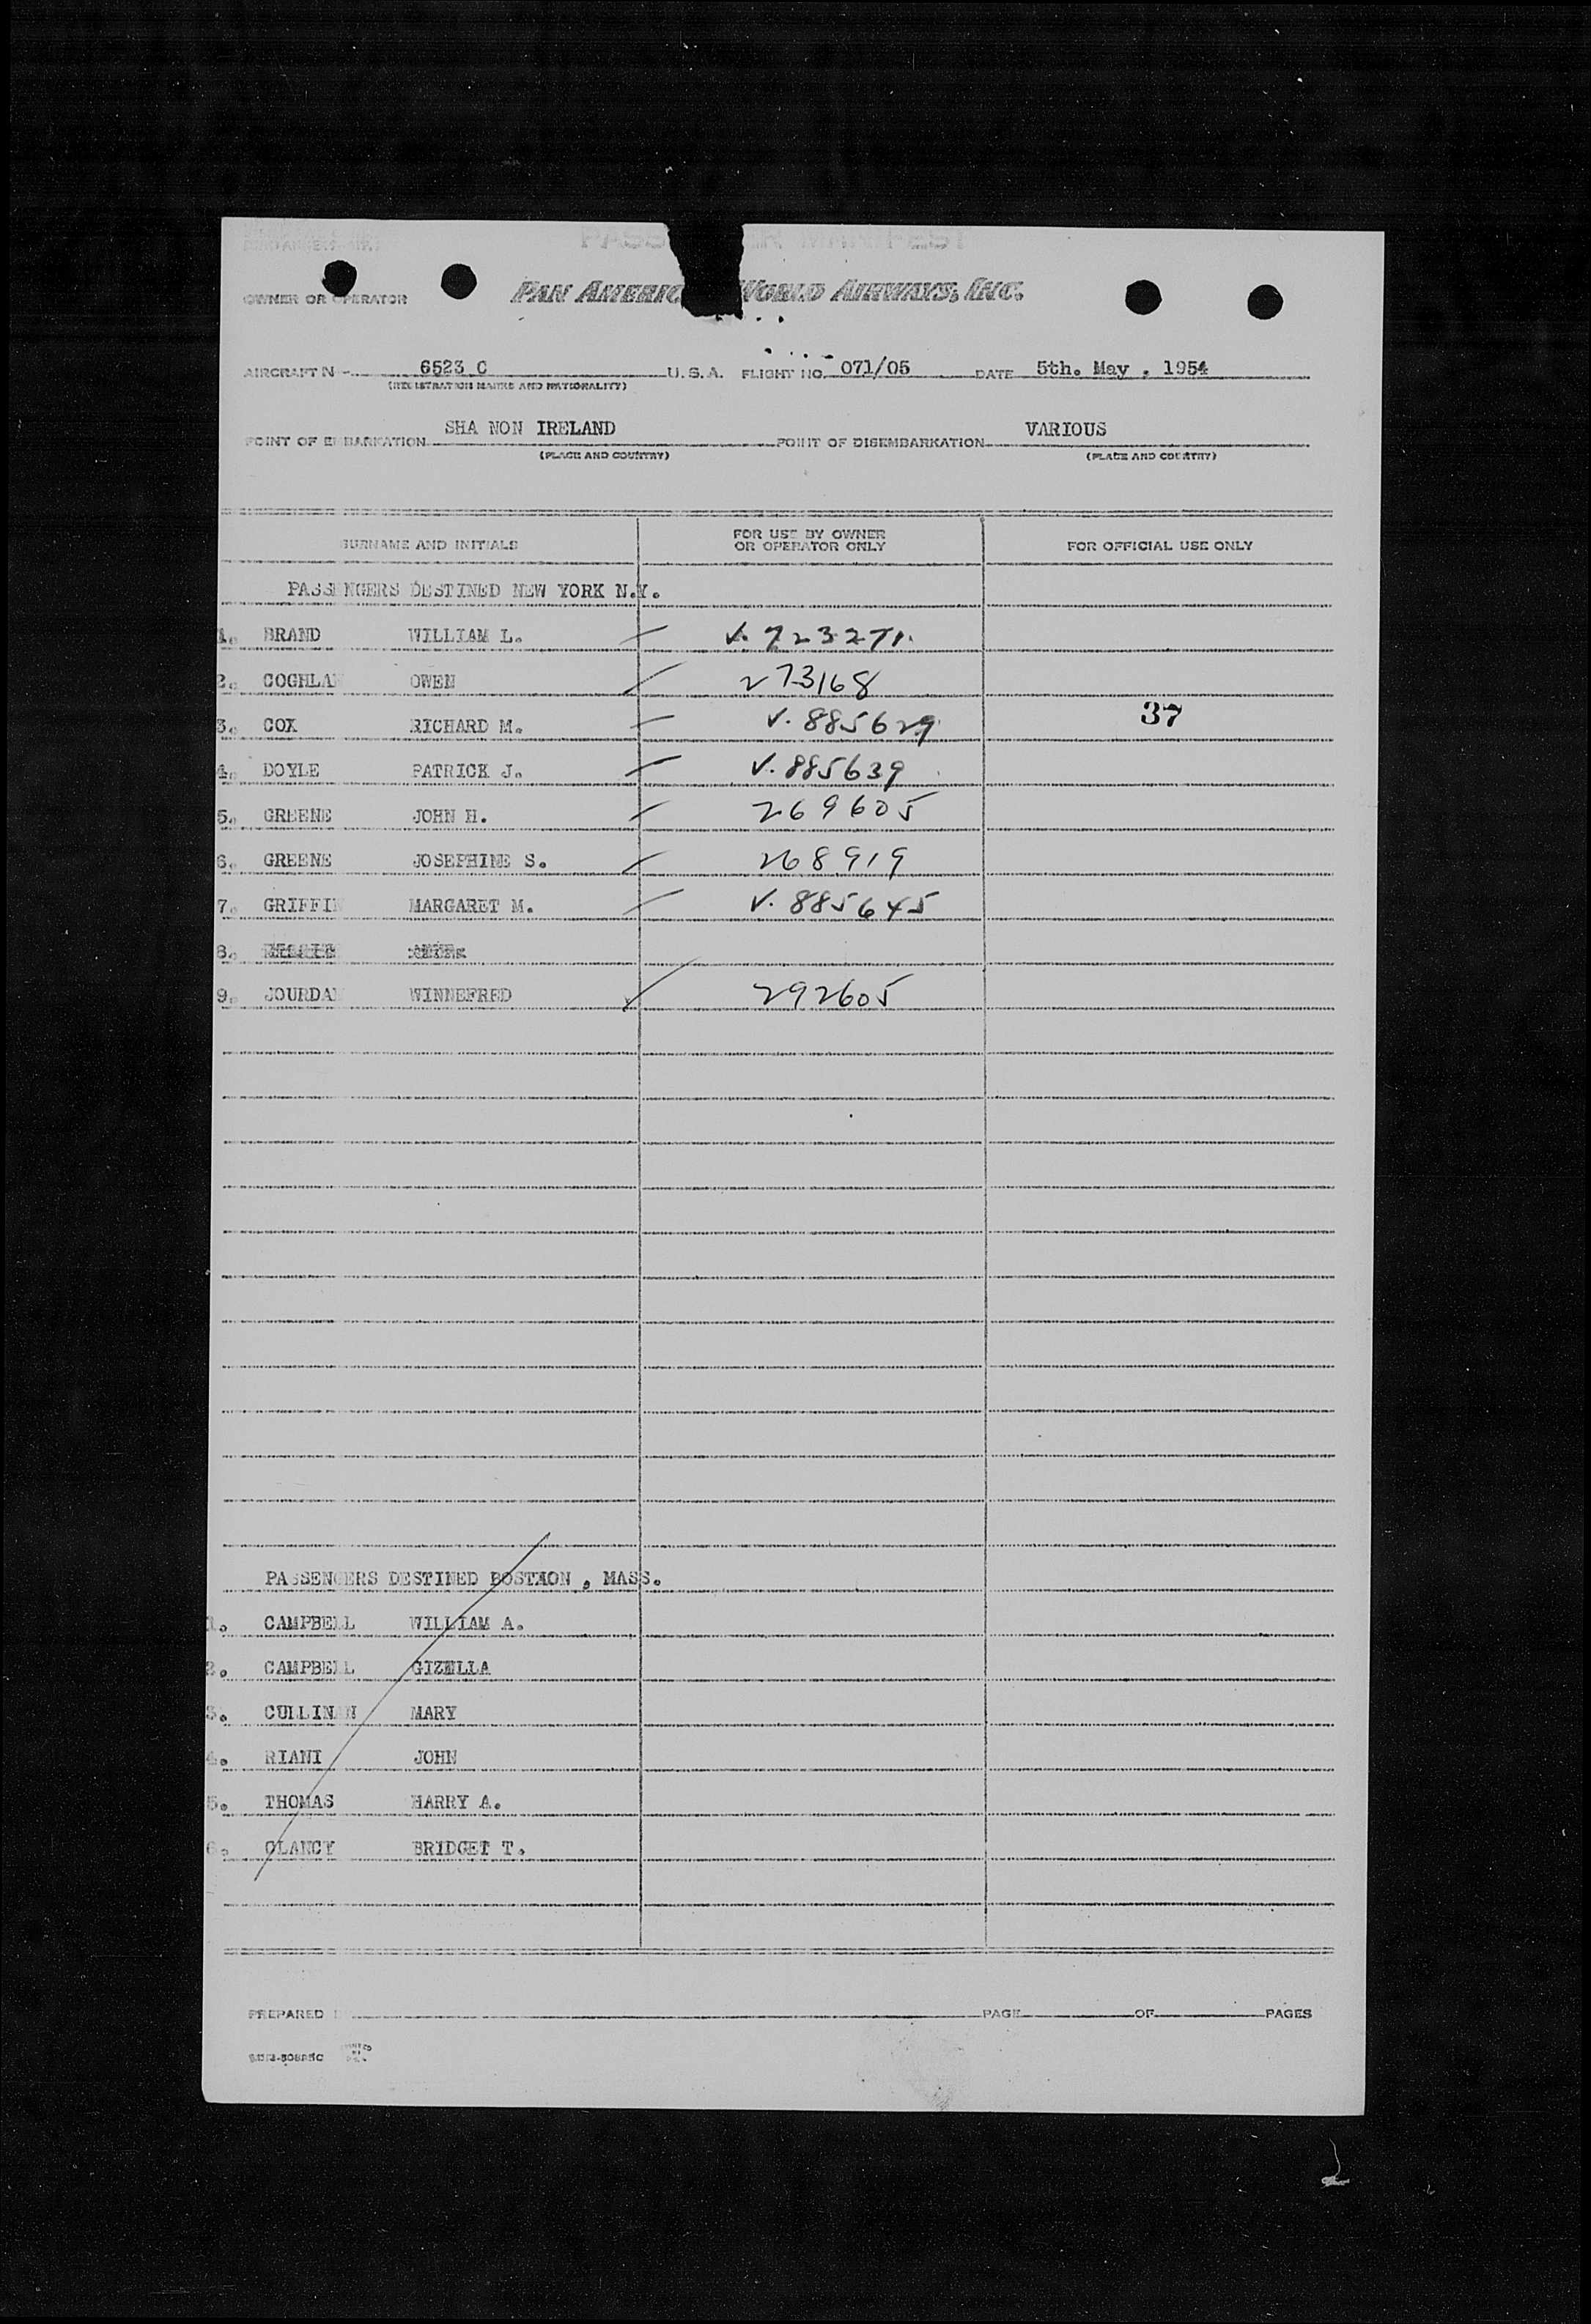 OWNER OR OPERATOR PAN AMERIC WORLD AIRWAYS, INC.
AIRCRAFT N- 6523 C U.S.A. FLIGHT NO. 071/05 DATE 5th. May . 1954
(REGISTRATION MARKS AND NATIONALITY)
POINT OF EMBARKATION SHA NON IRELAND POINT OF DISEMBARKATION VARIOUS
(PLACE AND COUNTRY) (PLACE AND COUNTRY)
SURNAME AND INITIALS FOR USE BY OWNER OR OPERATOR ONLY FOR OFFICIAL USE ONLY
PASSENGERS DESTINED NEW YORK N.Y.
1. BRAND WILLIAM L. V. 723271
2. COGHLAN OWEN 273168
3. COX RICHARD M. V. 885629 37
4. DOYLE PATRICK J. V. 885639
5. GREENE JOHN H. 269605
6. GREENE JOSEPHINE S. 268919
7. GRIFFIN MARGARET M. V. 885645
8.
9. JOURDAN WINNEFRED 292605
PASSENGERS DESTINED BOSTXON , MASS.
1. CAMPBELL WILLIAM A.
2. CAMPBELL GIZELLA
3. CULLINAN MARY
4. RIANI JOHN
5. THOMAS HARRY A.
6. CLANCY BRIDGET T.
PREPARED PAGE OF PAGES
2